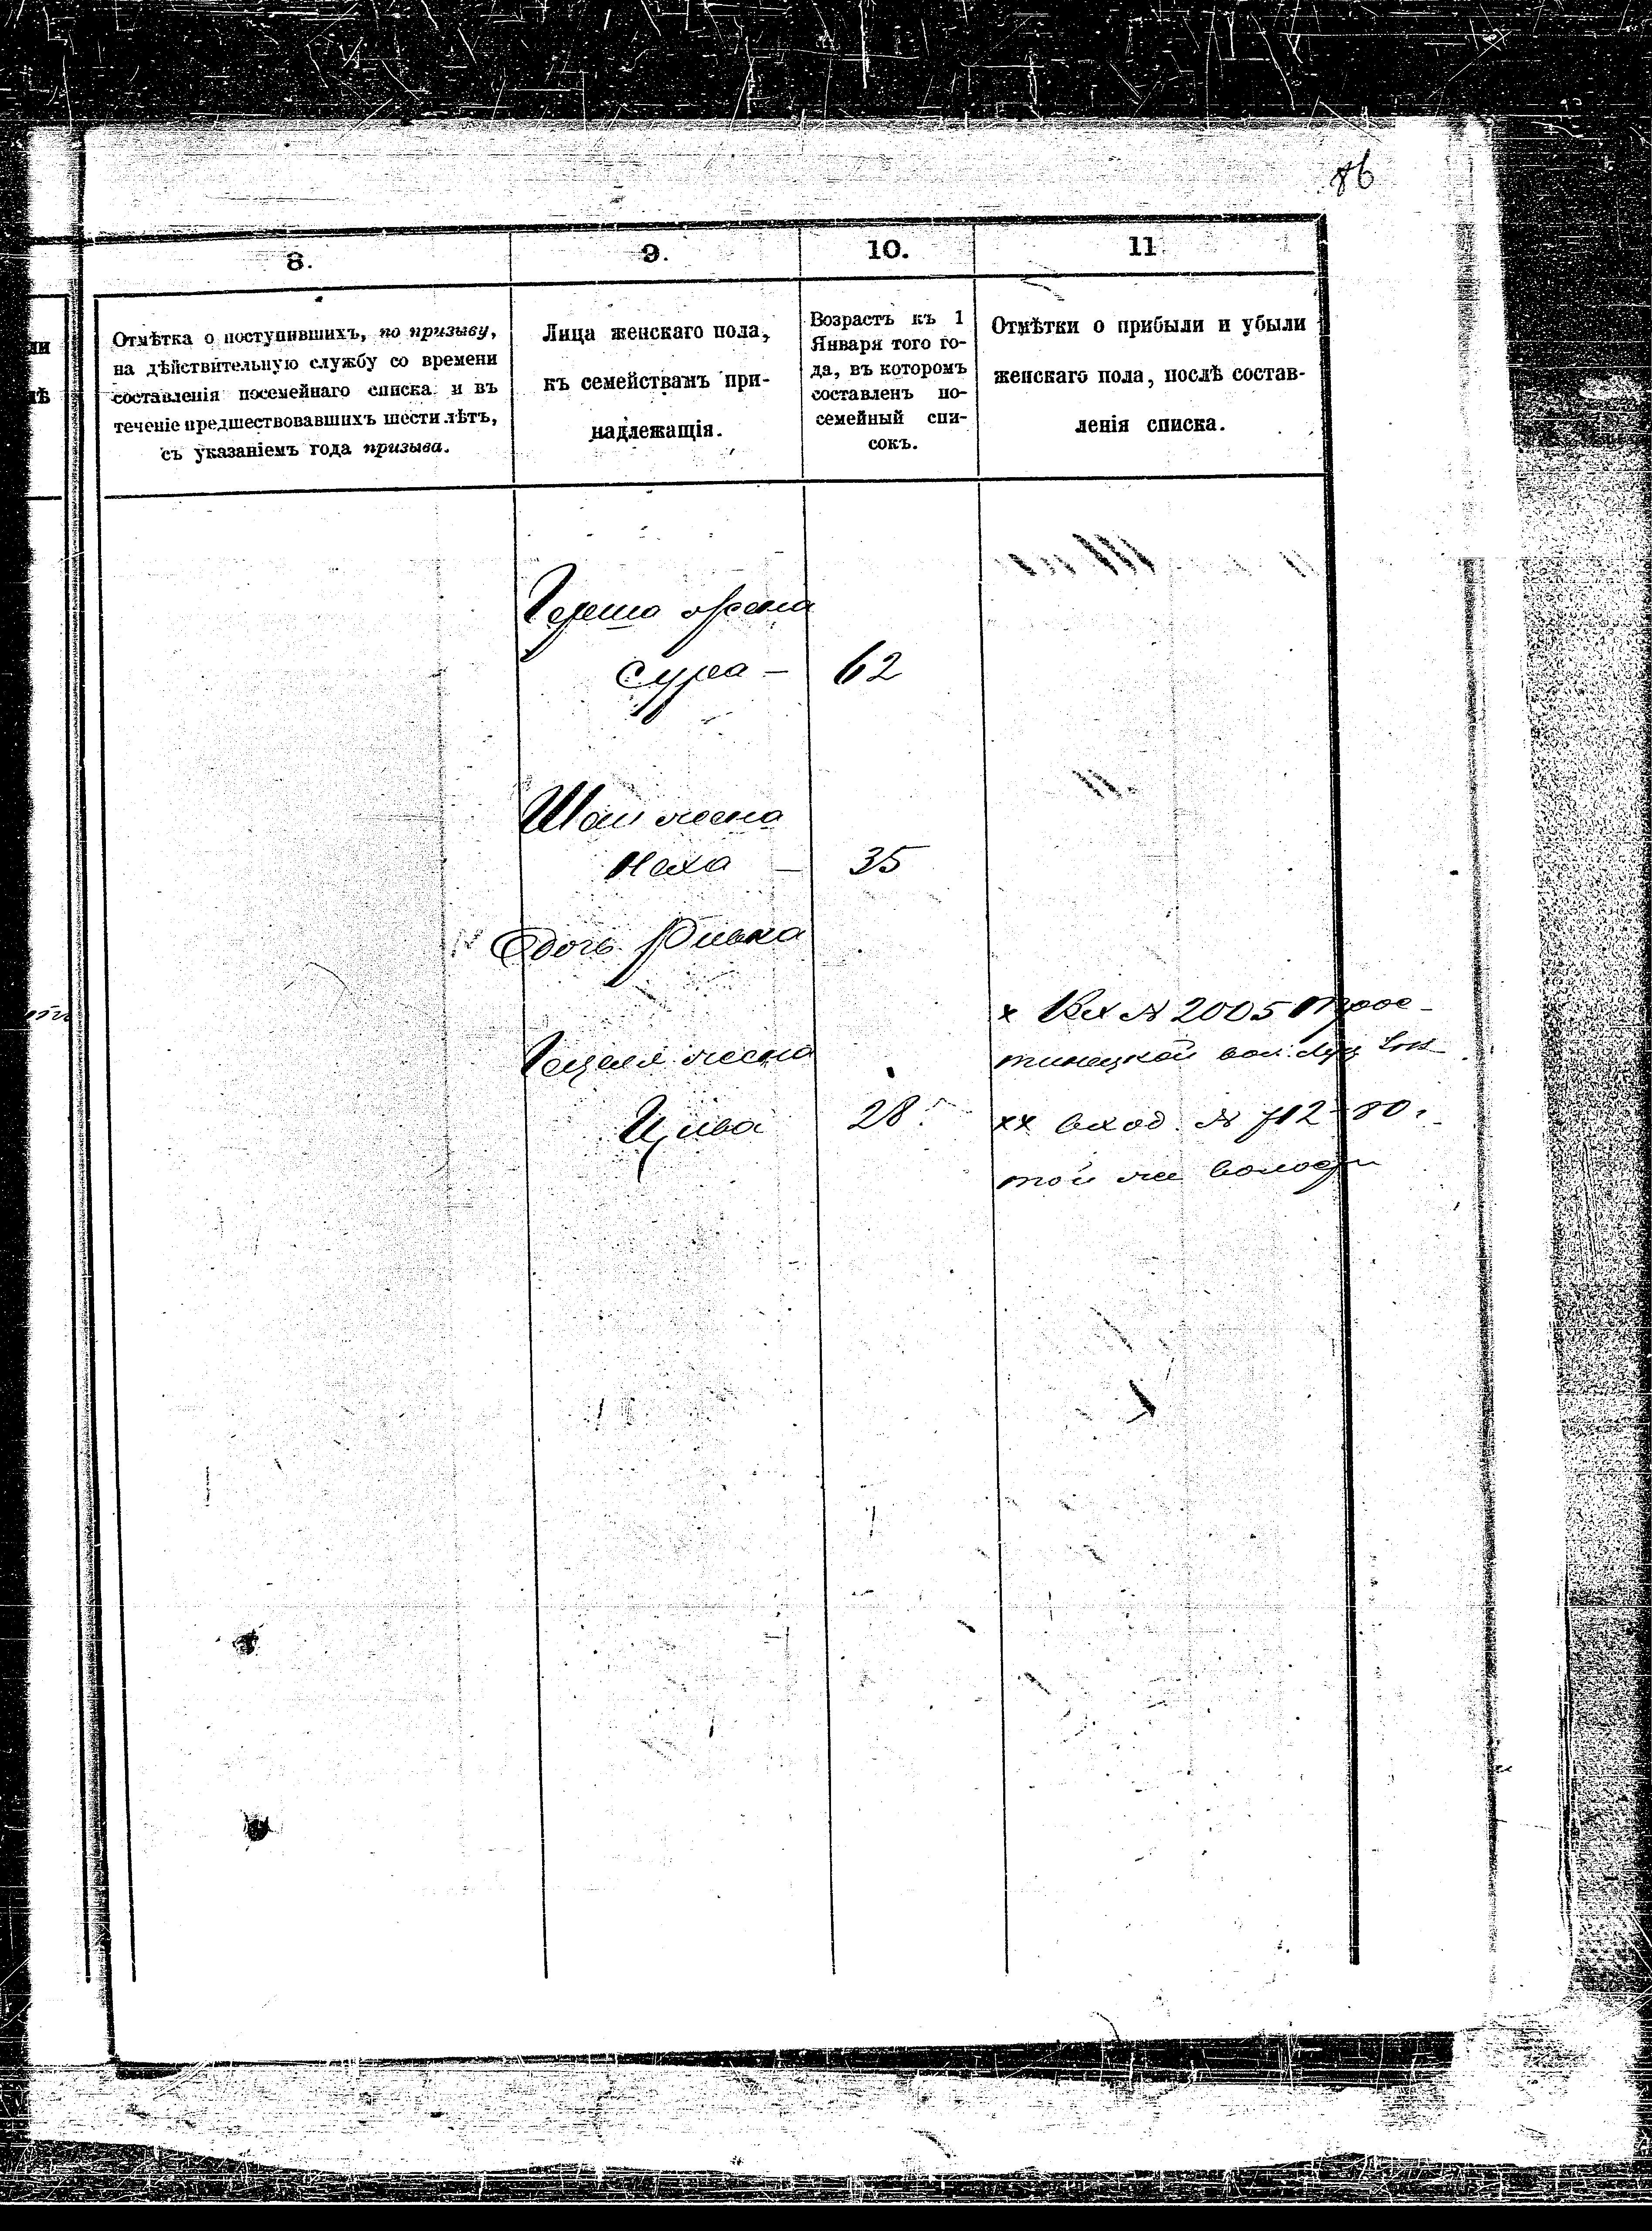 86
8.
9.
10.
11
Отмѣтка о поступившихъ, по призыву,
на дѣйствительную службу со времени
составленія посемейнаго списка и въ
теченіе предшествовавшихъ шести лѣтъ,
съ указаніемъ года призыва.
Лица женскаго пола,
къ семействамъ при-
надлежащія.
Возрастъ къ 1
Января того го-
да, въ которомъ
составленъ по-
семейный спи-
сокъ.
Отмѣтки о прибыли и убыли
женскаго пола, послѣ состав-
ленія списка.
Герша жена
Сура — 62
Шаи жена
Неха — 35
дочь Ривка
Гецеля жена
Цива 28
х Вх № 2005 Трос-
тинецкой вол. Луц
хх вход. № 712-80.
той же волости